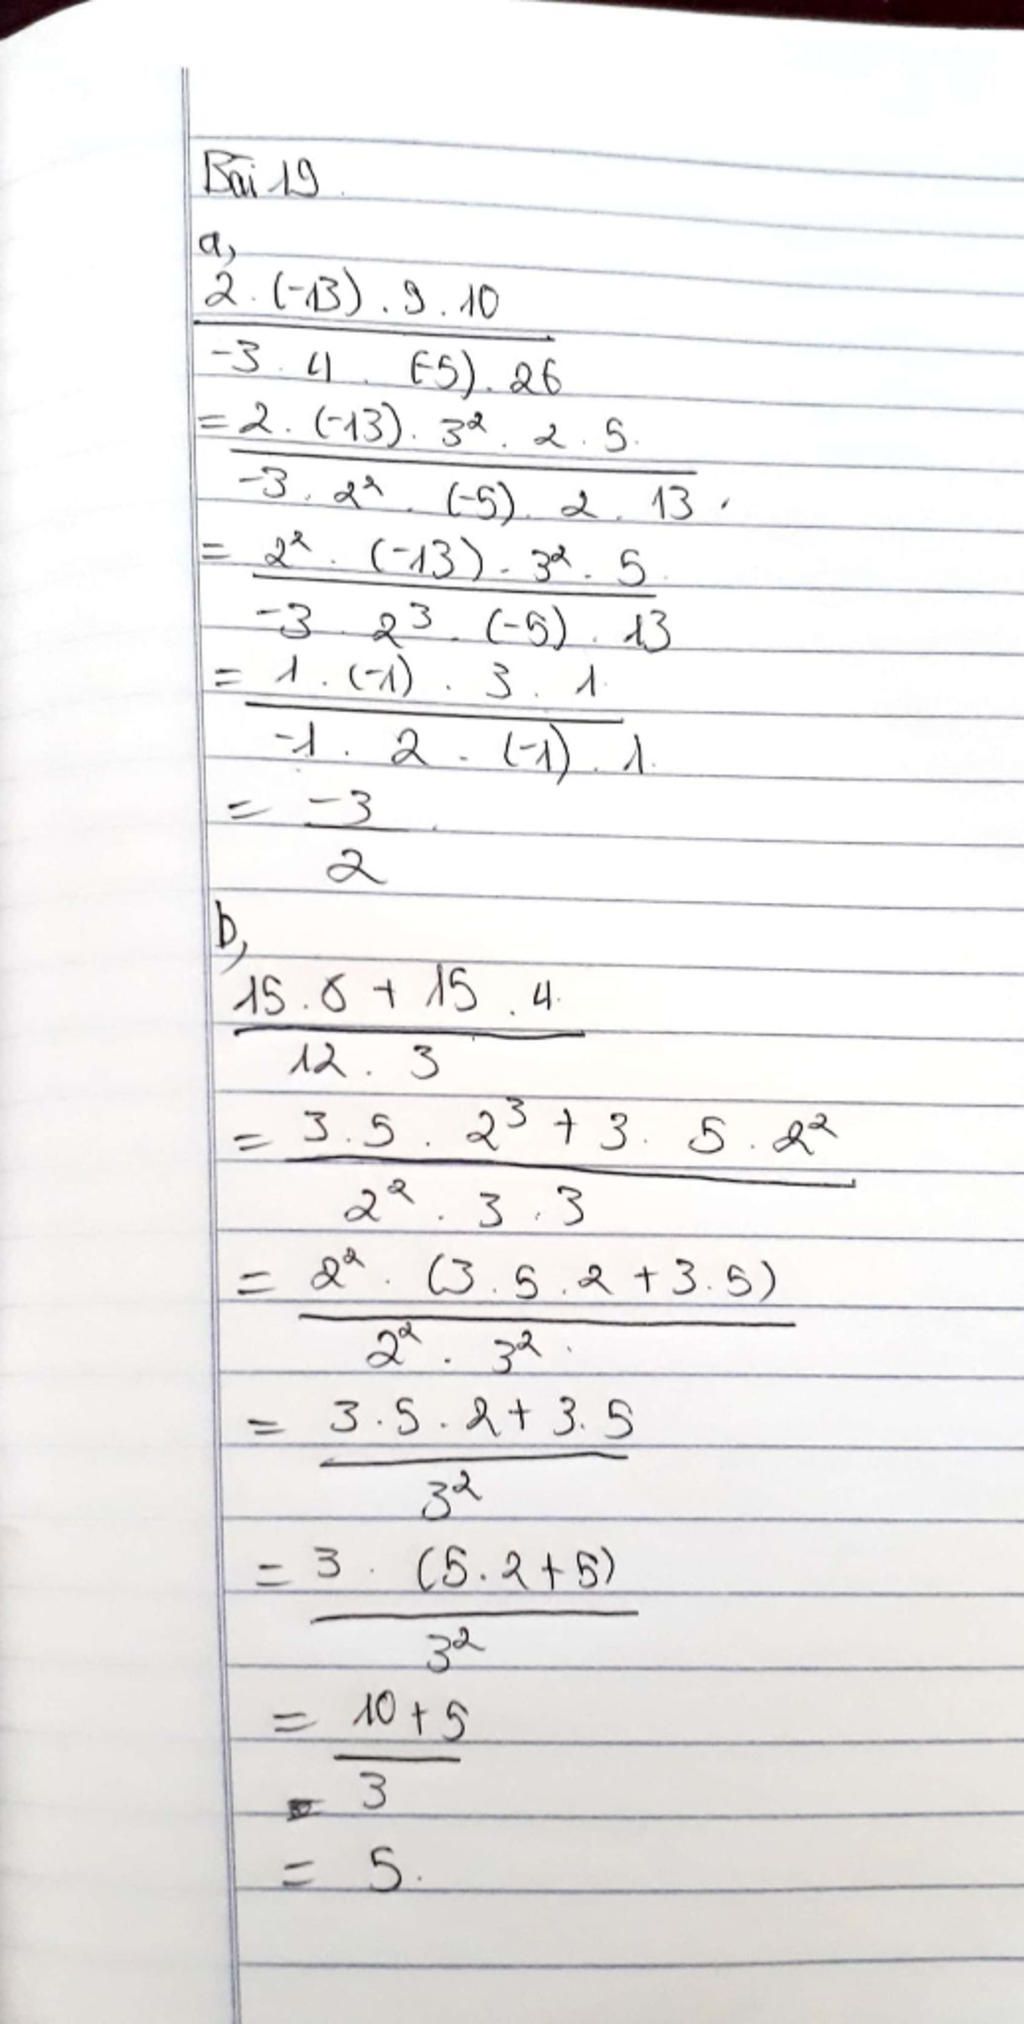 Bài 19
a,
2 . (-13) . 9 . 10
-3 . 4 . (-5) . 26
= 2 . (-13) . 3² . 2 . 5
-3 . 2² . (-5) . 2 . 13
= 2² . (-13) . 3² . 5
-3 . 2³ . (-5) . 13
= 1 . (-1) . 3 . 1
-1 . 2 . (-1) . 1
= -3
2
b,
15 . 8 + 15 . 4
12 . 3
= 3 . 5 . 2³ + 3 . 5 . 2²
2² . 3 . 3
= 2² . (3 . 5 . 2 + 3 . 5)
2² . 3²
= 3 . 5 . 2 + 3 . 5
3²
= 3 . (5 . 2 + 5)
3²
= 10 + 5
3
= 5.